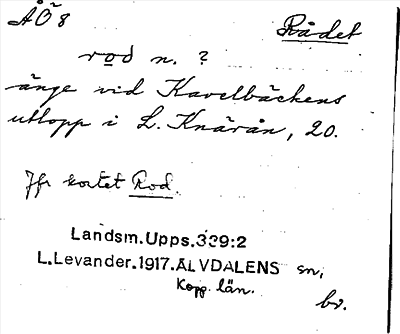 ÅÖ 8 Rådet
rod n. ?
änge vid Kavelbäckens
utlopp i L. Knärån, 20.
Jfr kortet Rod.
Landsm.Upps.339:2
L.Levander.1917.ÄLVDALENS sn,
Kopp. län.
bv.